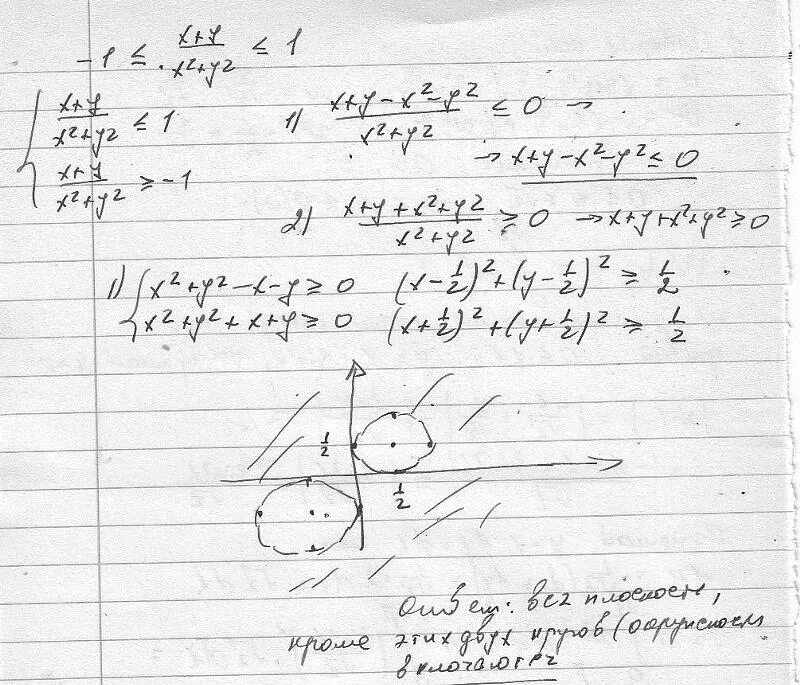 -1 ≤ (x+y)/(x²+y²) ≤ 1
{ (x+y)/(x²+y²) ≤ 1
(x+y)/(x²+y²) ≥ -1
1) (x+y-x²-y²)/(x²+y²) ≤ 0 →
→ x+y-x²-y² ≤ 0
2) (x+y+x²+y²)/(x²+y²) ≥ 0 → x+y+x²+y² ≥ 0
1) { x²+y²-x-y ≥ 0 (x-1/2)²+(y-1/2)² ≥ 1/2
x²+y²+x+y ≥ 0 (x+1/2)²+(y+1/2)² ≥ 1/2
1/2
1/2
Ответ: вся плоскость,
кроме этих двух кругов (окружность
включается